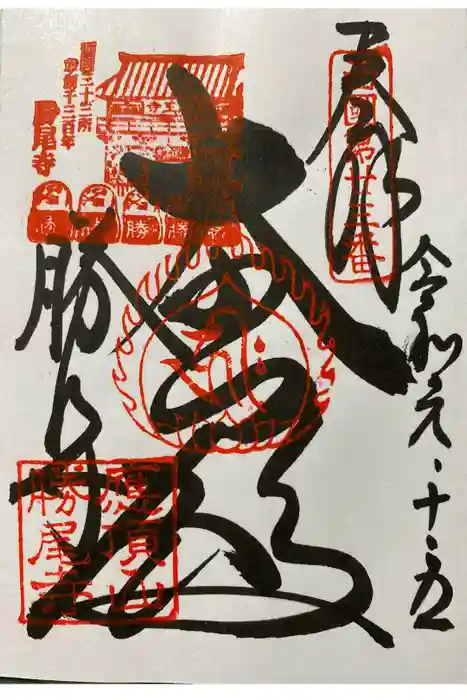 奉拝
西國第廿三番
令和元・十・五
大悲殿
西国三十三所
草創千三百年
勝尾寺
勝 勝 勝 勝 勝
勝尾寺
應頂山
勝尾寺